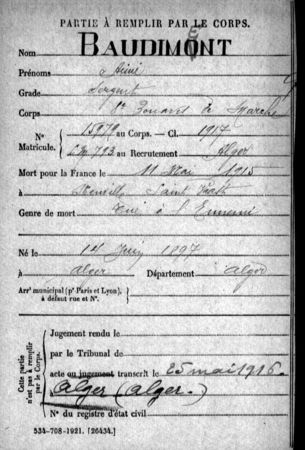 PARTIE À REMPLIR PAR LE CORPS.
Nom BAUDIMONT
Prénoms Aimé
Grade Sergent
Corps 1er Zouaves de Marche
N° Matricule. 15979 au Corps. — Cl. 1917
L.M. 793 au Recrutement Alger
Mort pour la France le 11 Mai 1915
à Neuville Saint Vaast
Genre de mort Tué à l'Ennemi
Né le 14 Juin 1897
à Alger Département Alger
Arrt municipal (pr Paris et Lyon), à défaut rue et N°.
Cette partie n'est pas à remplir par le Corps.
Jugement rendu le
par le Tribunal de
acte ou jugement transcrit le 25 mai 1916.
à Alger (Alger.)
N° du registre d'état civil
534-708-1921. [26434.]